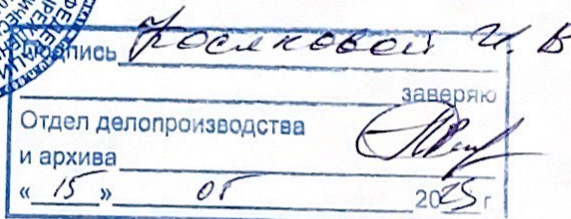 Подпись Росляковой И. В
заверяю
Отдел делопроизводства
и архива
« 15 » 05 2025 г